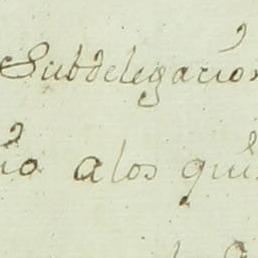 Subdelegacion
io a los quin